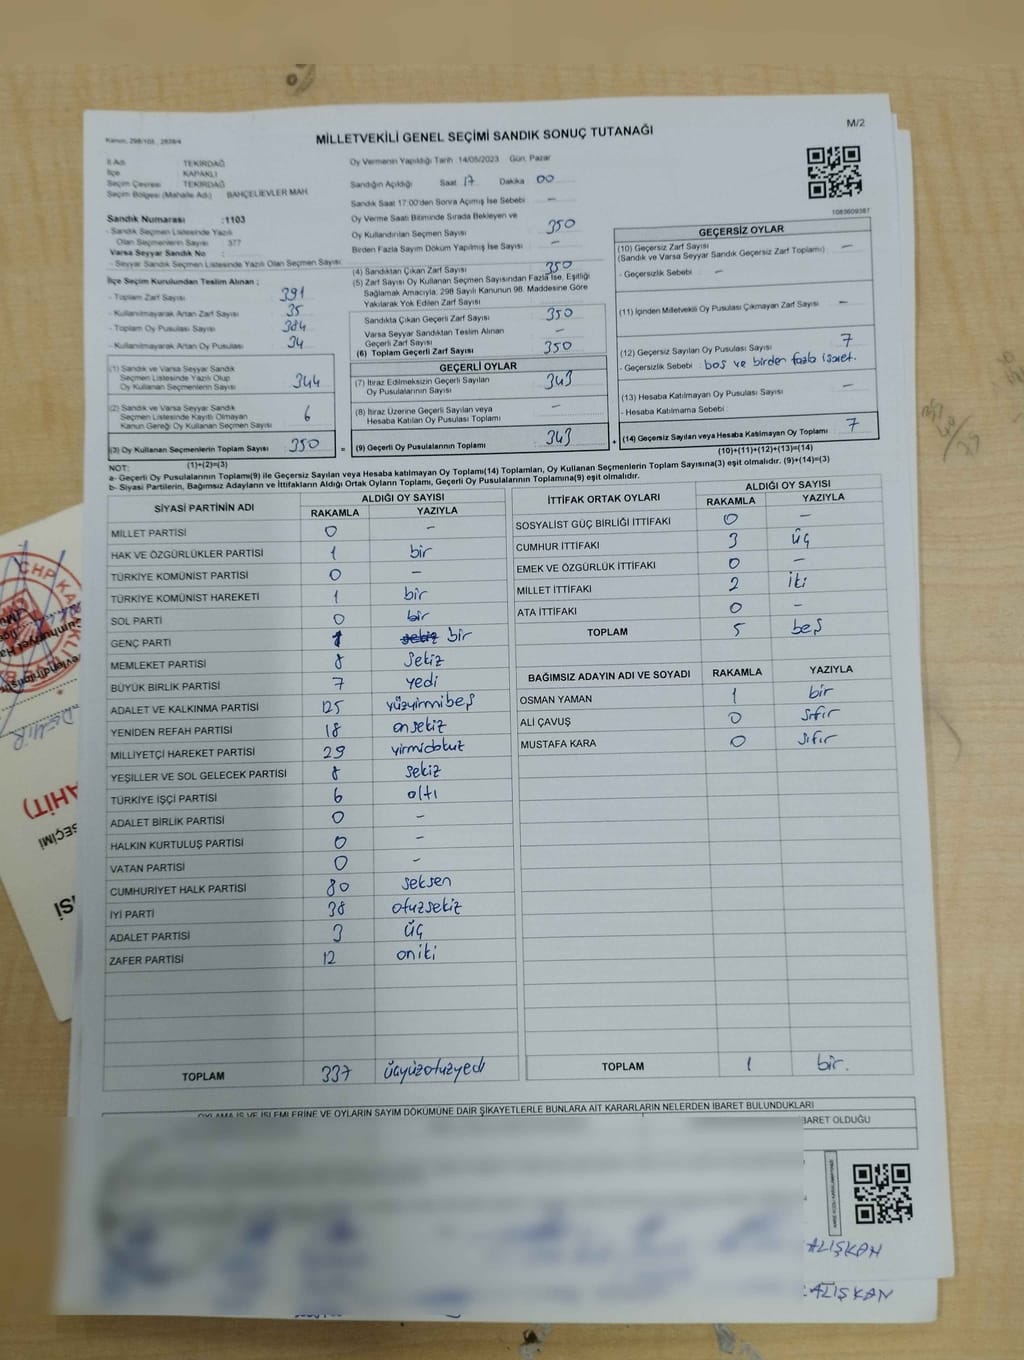 M/2
MİLLETVEKİLİ GENEL SEÇİMİ SANDIK SONUÇ TUTANAĞI
İl Adı TEKİRDAĞ
İlçe KAPAKLI
Seçim Çevresi TEKİRDAĞ
Seçim Bölgesi (Mahalle Adı) BAHÇELİEVLER MAH.
Sandık Numarası :1103
- Sandık Seçmen Listesinde Yazılı
Olan Seçmenlerin Sayısı : 377
Varsa Seyyar Sandık No
- Seyyar Sandık Seçmen Listesinde Yazılı Olan Seçmen Sayısı:
İlçe Seçim Kurulundan Teslim Alınan ;
- Toplam Zarf Sayısı 391
- Kullanılmayarak Artan Zarf Sayısı 35
- Toplam Oy Pusulası Sayısı 384
- Kullanılmayarak Artan Oy Pusulası 34
(1) Sandık ve Varsa Seyyar Sandık
Seçmen Listesinde Yazılı Olup
Oy Kullanan Seçmenlerin Sayısı 344
(2) Sandık ve Varsa Seyyar Sandık
Seçmen Listesinde Kayıtlı Olmayan
Kanun Gereği Oy Kullanan Seçmen Sayısı 6
(3) Oy Kullanan Seçmenlerin Toplam Sayısı 350 =
(1)+(2)=(3)
Oy Vermenin Yapıldığı Tarih 14/05/2023 Gün Pazar
Sandığın Açıldığı Saat 17 Dakika 00
Sandık Saat 17:00'den Sonra Açımış İse Sebebi -
Oy Verme Saati Bitiminde Sırada Bekleyen ve
Oy Kullandırılan Seçmen Sayısı 350
Birden Fazla Sayım Döküm Yapılmış İse Sayısı -
(4) Sandıktan Çıkan Zarf Sayısı 350
(5) Zarf Sayısı Oy Kullanan Seçmen Sayısından Fazla İse, Eşitliği
Sağlamak Amacıyla, 298 Sayılı Kanunun 98. Maddesine Göre
Yakılarak Yok Edilen Zarf Sayısı
Sandıkta Çıkan Geçerli Zarf Sayısı 350
Varsa Seyyar Sandıktan Teslim Alınan
Geçerli Zarf Sayısı -
(6) Toplam Geçerli Zarf Sayısı 350
GEÇERLİ OYLAR
(7) İtiraz Edilmeksizin Geçerli Sayılan
Oy Pusulalarının Sayısı 343
(8) İtiraz Üzerine Geçerli Sayılan veya
Hesaba Katılan Oy Pusulaları Toplamı -
(9) Geçerli Oy Pusulalarının Toplamı 343 +
1083609387
GEÇERSİZ OYLAR
(10) Geçersiz Zarf Sayısı
(Sandık ve Varsa Seyyar Sandık Geçersiz Zarf Toplamı) -
- Geçersizlik Sebebi -
(11) İçinden Milletvekili Oy Pusulası Çıkmayan Zarf Sayısı -
(12) Geçersiz Sayılan Oy Pusulası Sayısı 7
- Geçersizlik Sebebi boş ve birden fazla işaret.
(13) Hesaba Katılmayan Oy Pusulası Sayısı -
- Hesaba Katılmama Sebebi
(14) Geçersiz Sayılan veya Hesaba Katılmayan Oy Toplamı 7
(10)+(11)+(12)+(13)=(14)
NOT:
a- Geçerli Oy Pusulasının Toplamı(9) ile Geçersiz Sayılan veya Hesaba katılmayan Oy Toplamı(14) Toplamları, Oy Kullanan Seçmenlerin Toplam Sayısına(3) eşit olmalıdır. (9)+(14)=(3)
b- Siyasi Partilerin, Bağımsız Adayların ve İttifakların Aldığı Ortak Oyların Toplamı, Geçerli Oy Pusulalarının Toplamına(9) eşit olmalıdır.
SİYASİ PARTİNİN ADI ALDIĞI OY SAYISI
RAKAMLA YAZIYLA
MİLLET PARTİSİ 0 -
HAK VE ÖZGÜRLÜKLER PARTİSİ 1 bir
TÜRKİYE KOMÜNİST PARTİSİ 0 -
TÜRKİYE KOMÜNİST HAREKETİ 1 bir
SOL PARTİ 0 bir
GENÇ PARTİ 1 sekiz bir
MEMLEKET PARTİSİ 8 sekiz
BÜYÜK BİRLİK PARTİSİ 7 yedi
ADALET VE KALKINMA PARTİSİ 125 yüzyirmibeş
YENİDEN REFAH PARTİSİ 18 onsekiz
MİLLİYETÇİ HAREKET PARTİSİ 29 yirmidokuz
YEŞİLLER VE SOL GELECEK PARTİSİ 8 sekiz
TÜRKİYE İŞÇİ PARTİSİ 6 altı
ADALET BİRLİK PARTİSİ 0 -
HALKIN KURTULUŞ PARTİSİ 0 -
VATAN PARTİSİ 0 -
CUMHURİYET HALK PARTİSİ 80 seksen
İYİ PARTİ 38 otuzsekiz
ADALET PARTİSİ 3 üç
ZAFER PARTİSİ 12 oniki
TOPLAM 337 üçyüzotuzyedi
İTTİFAK ORTAK OYLARI ALDIĞI OY SAYISI
RAKAMLA YAZIYLA
SOSYALİST GÜÇ BİRLİĞİ İTTİFAKI 0 -
CUMHUR İTTİFAKI 3 üç
EMEK VE ÖZGÜRLÜK İTTİFAKI 0 -
MİLLET İTTİFAKI 2 iki
ATA İTTİFAKI 0 -
TOPLAM 5 beş
BAĞIMSIZ ADAYIN ADI VE SOYADI RAKAMLA YAZIYLA
OSMAN YAMAN 1 bir
ALİ ÇAVUŞ 0 sıfır
MUSTAFA KARA 0 sıfır
TOPLAM 1 bir.
OYLAMA İŞ VE İŞLEMLERİNE VE OYLARIN SAYIM DÖKÜMÜNE DAİR ŞİKAYETLERLE BUNLARA AİT KARARLARIN NELERDEN İBARET BULUNDUKLARI
BARET OLDUĞU
ALIŞKAN
ALIŞKAN
CHP KA
AHİT)
SEÇİMİ
İSİ